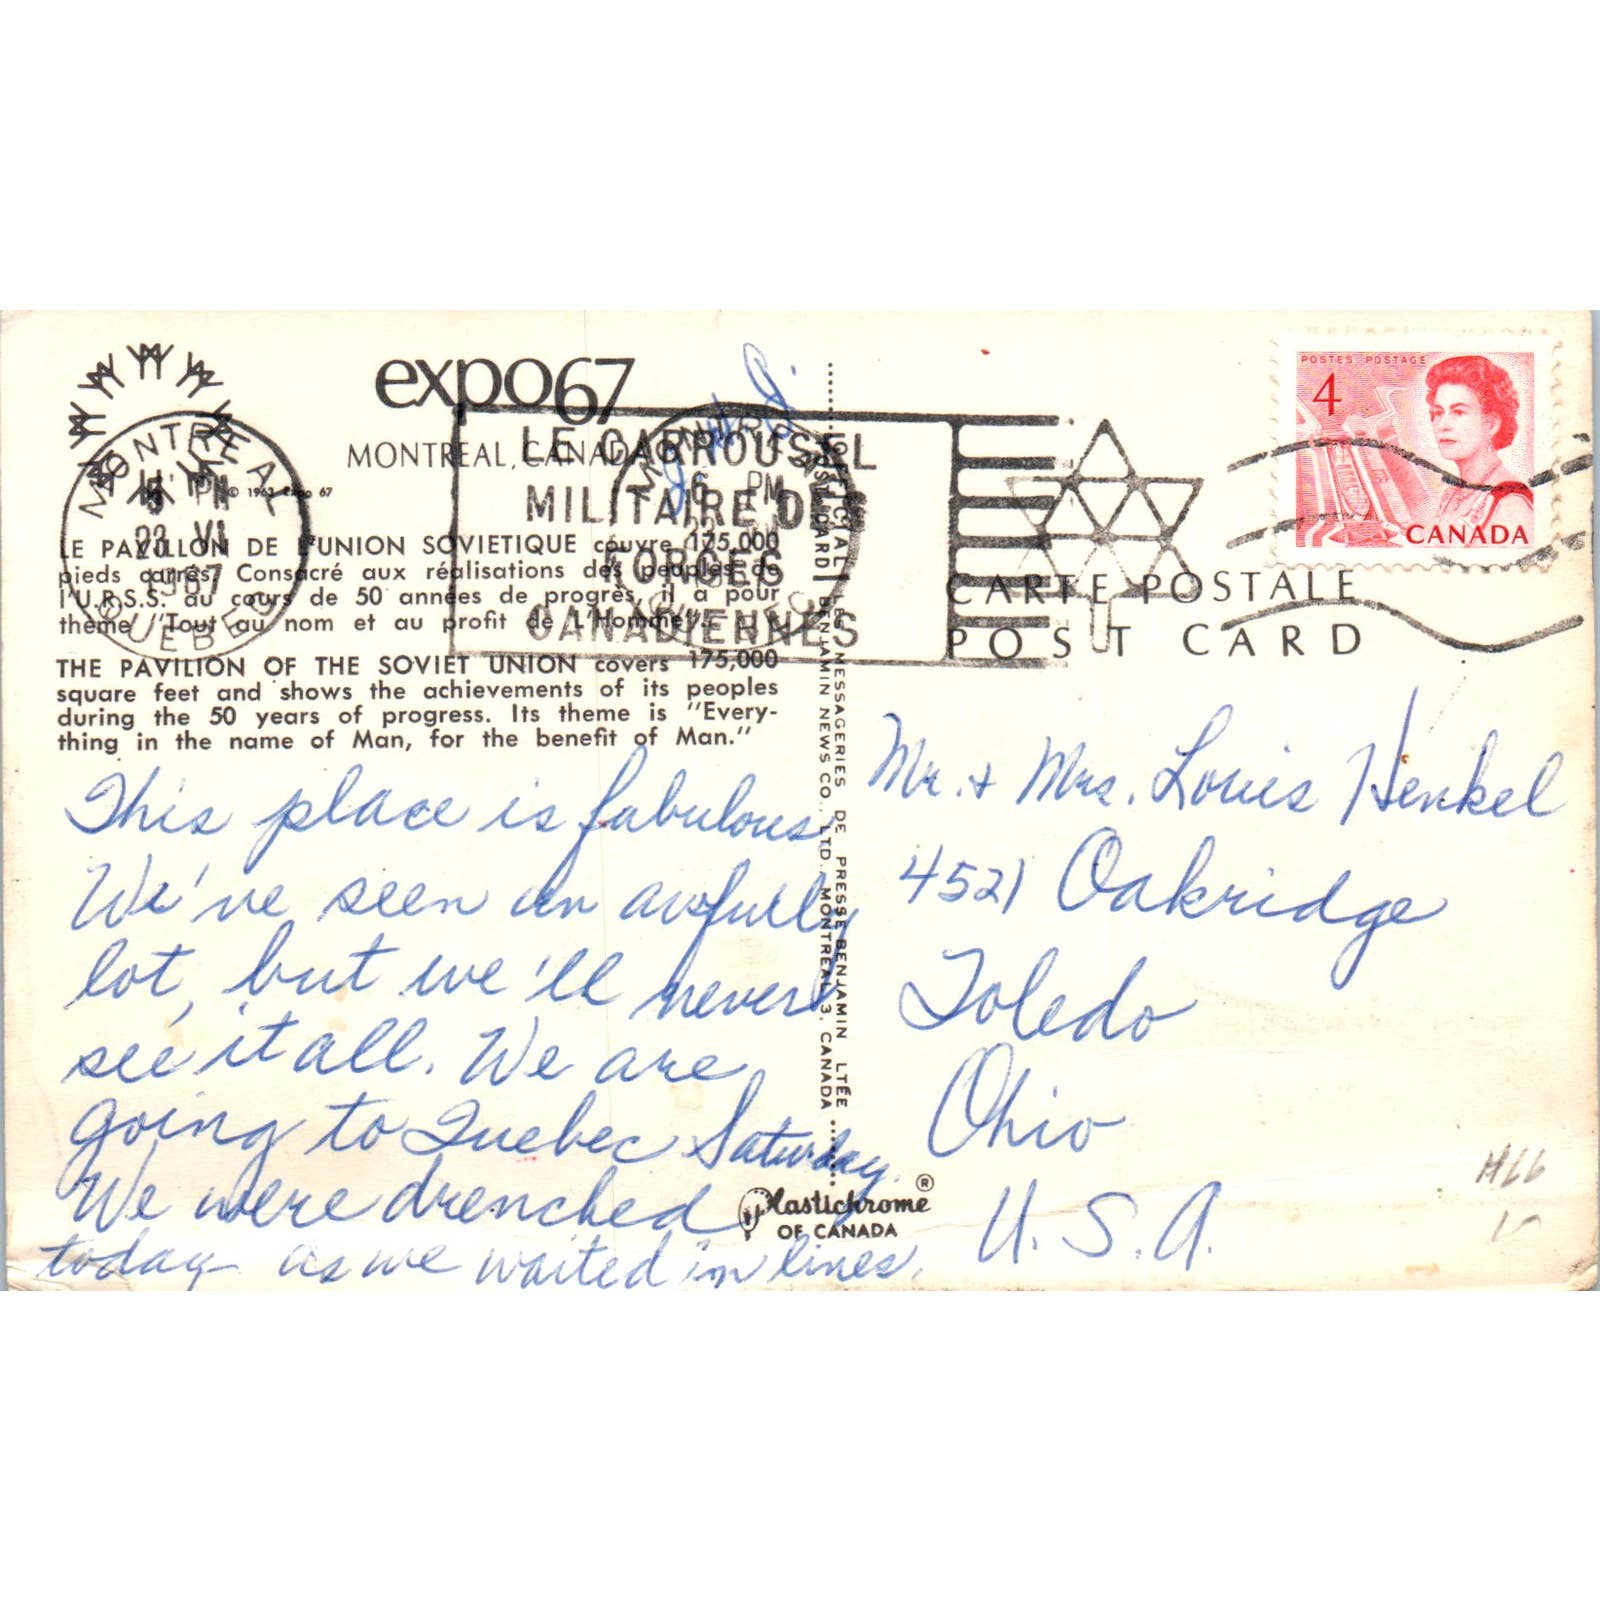 expo67
MONTREAL, CANADA
© 1963 Expo 67
LE PAVILLON DE L'UNION SOVIETIQUE couvre 175,000
pieds carrés. Consacré aux réalisations des peuples de
l'U.R.S.S. au cours de 50 années de progrès, il a pour
thème "Tout au nom et au profit de L'Homme".
THE PAVILION OF THE SOVIET UNION covers 175,000
square feet and shows the achievements of its peoples
during the 50 years of progress. Its theme is "Every-
thing in the name of Man, for the benefit of Man."
MONTREAL
5 PM
23 VI
1967
QUEBEC
LE CARROUSEL
MILITAIRE DES
FORCES
CANADIENNES
6 PM
This place is fabulous
We've seen an awfully
lot, but we'll never
see it all. We are
going to Quebec Saturday.
We were drenched
today as we waited in lines.
LES MESSAGERIES DE PRESSE BENJAMIN LTÉE
BENJAMIN NEWS CO., LTD. MONTREAL 3, CANADA
Plastichrome ®
OF CANADA
POSTES POSTAGE
4
CANADA
CARTE POSTALE
POST CARD
Mr. + Mrs. Louis Henkel
4521 Oakridge
Toledo
Ohio
U.S.A.
H66